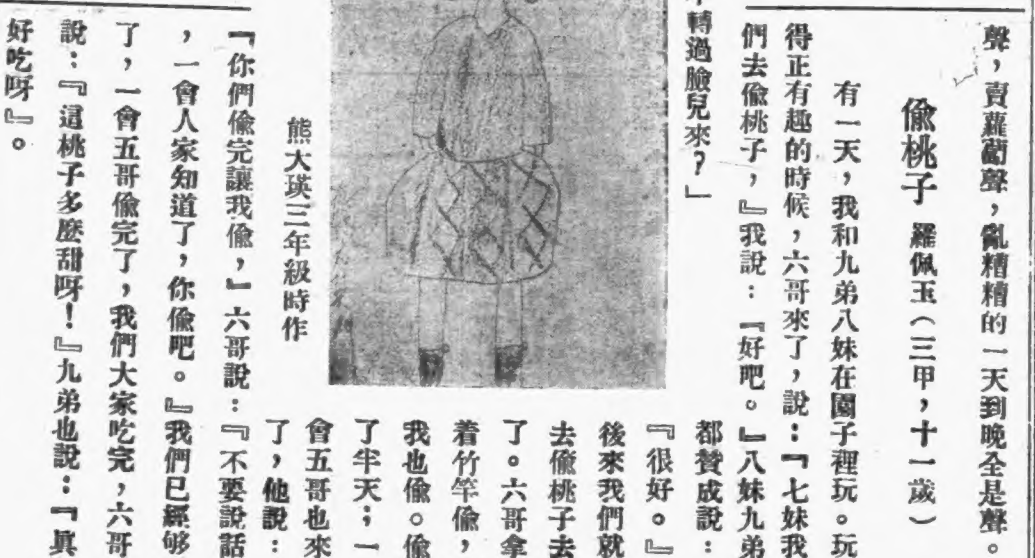 聲，賣蘿蔔聲，亂糟糟的一天到晚全是聲。
偷桃子 羅佩玉（三甲，十一歲）
有一天，我和九弟八妹在園子裡玩。玩
得正有趣的時候，六哥來了，說：『七妹我
們去偷桃子，』我說：『好吧。』八妹九弟
都贊成說：
『很好。』
後來我們就
去偷桃子去
了。六哥拿
着竹竿偷，
我也偷。偷
了半天；一
會五哥也來
了，他說：
『你們偷完讓我偷，』六哥說：『不要說話
，一會人家知道了，你偷吧。』我們已經够
了，一會五哥偷完了，我們大家吃完，六哥
說：『這桃子多麼甜呀！』九弟也說：『真
好吃呀』。
轉過臉兒來？」
熊大瑛三年級時作